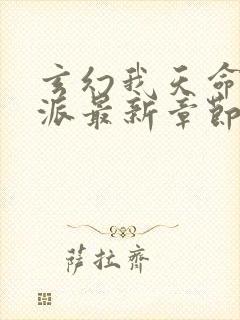 玄幻我天命
派最新章節
萨拉齊